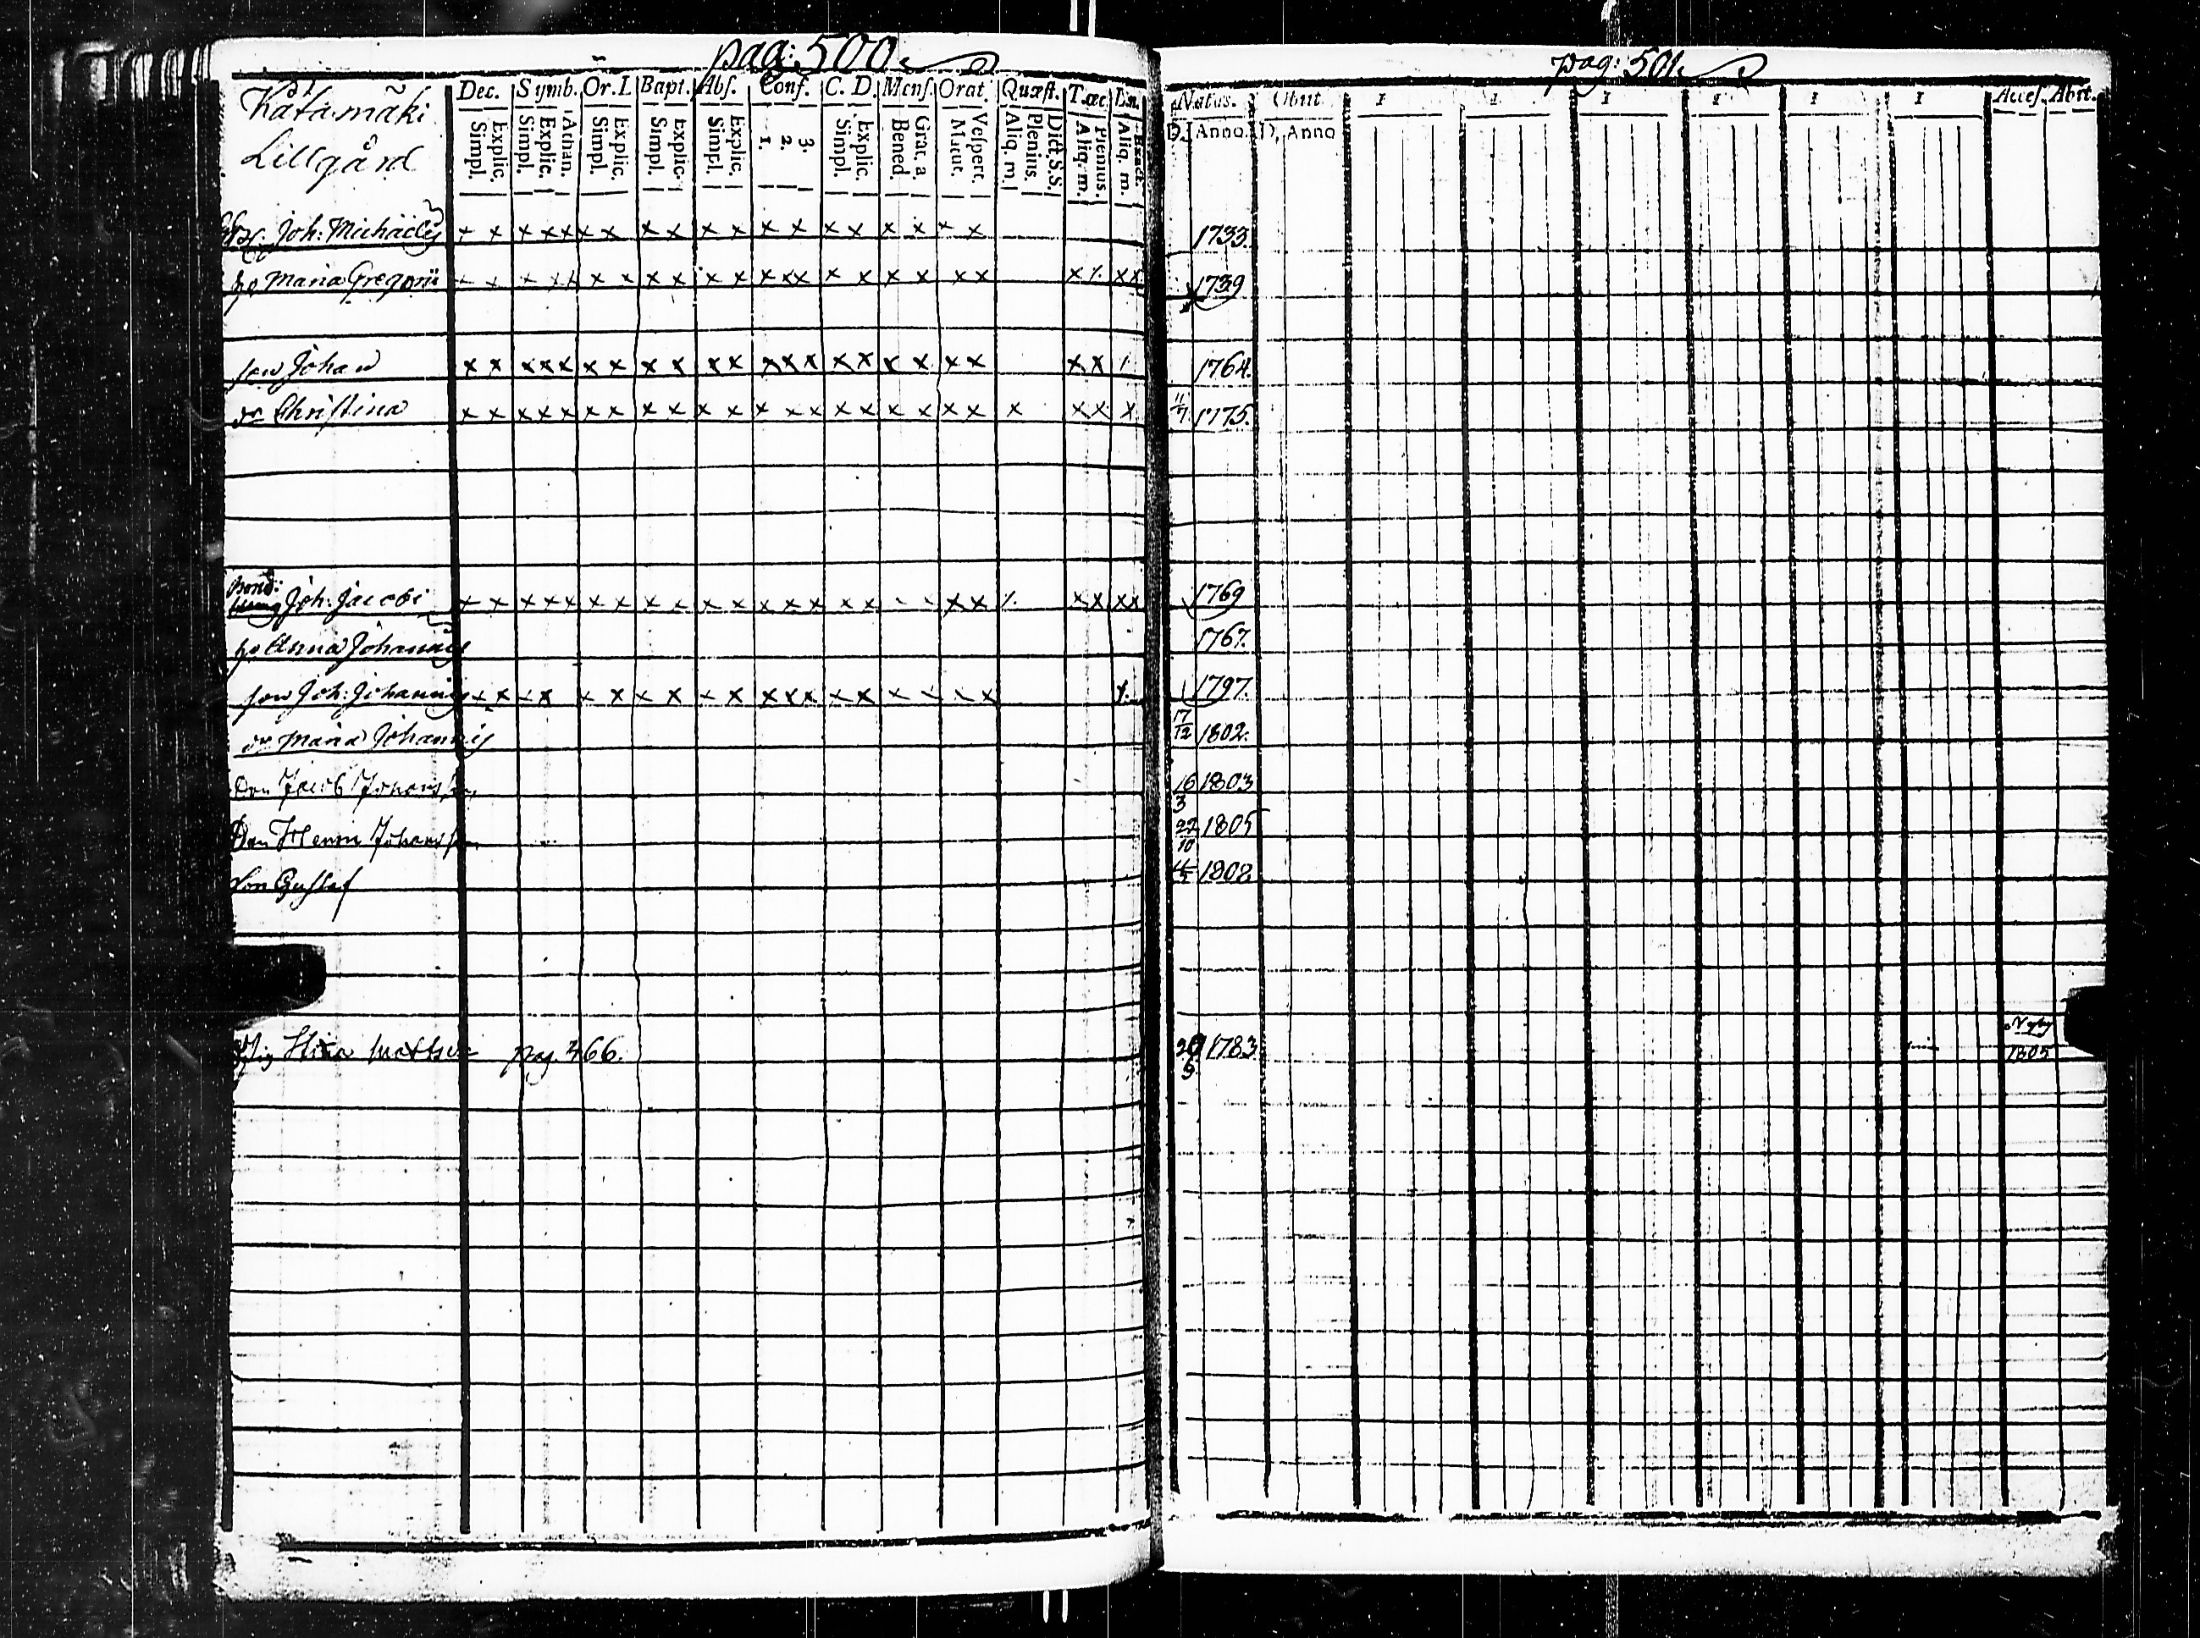 pag: 500.
Katamäki
Lillgård
Dec. Symb. Or. I. Bapt. Abs. Conf. C. D. Mens. Orat. Quæst. T.œc. En.
Simpl. Explic. Simpl. Explic. Athan. Simpl. Explic. Simpl. Explic. Simpl. Explic. 1. 2. 3. Simpl. Explic. Bened. Grat. a. Matut. Vespert. Aliq. m. Plenius. Dict. S.S. Aliq. m. Plenius. Aliq. m. Exact.
Joh: Michaelis x x x x x x x x x x x x x x x x x x x
ho Maria Gregorii x x x x x x x x x x x x x x x x x x x x x x x x
son Johan x x x x x x x x x x x x x x x x x x x x x x
dr Christina x x x x x x x x x x x x x x x x x x x x x x x x
Joh: Jacobi x x x x x x x x x x x x x x x x x x x x x x
ho Anna Johannis
son Joh: Johannis x x x x x x x x x x x x x x x x x x
dr Maria Johannis
Son Jacob Johansson
Son Herm Johansson
Son Gustaf
Pig Stina Matsdr pag 366.
pag: 501.
Natus. Obiit I I I I I I Acces. Abit.
D. Anno D. Anno
1733.
1739
1764.
11/7. 1775.
1769
1767.
1797.
17/12 1802.
16/3 1803
22/10 1805
1808.
29/9 1783
1805